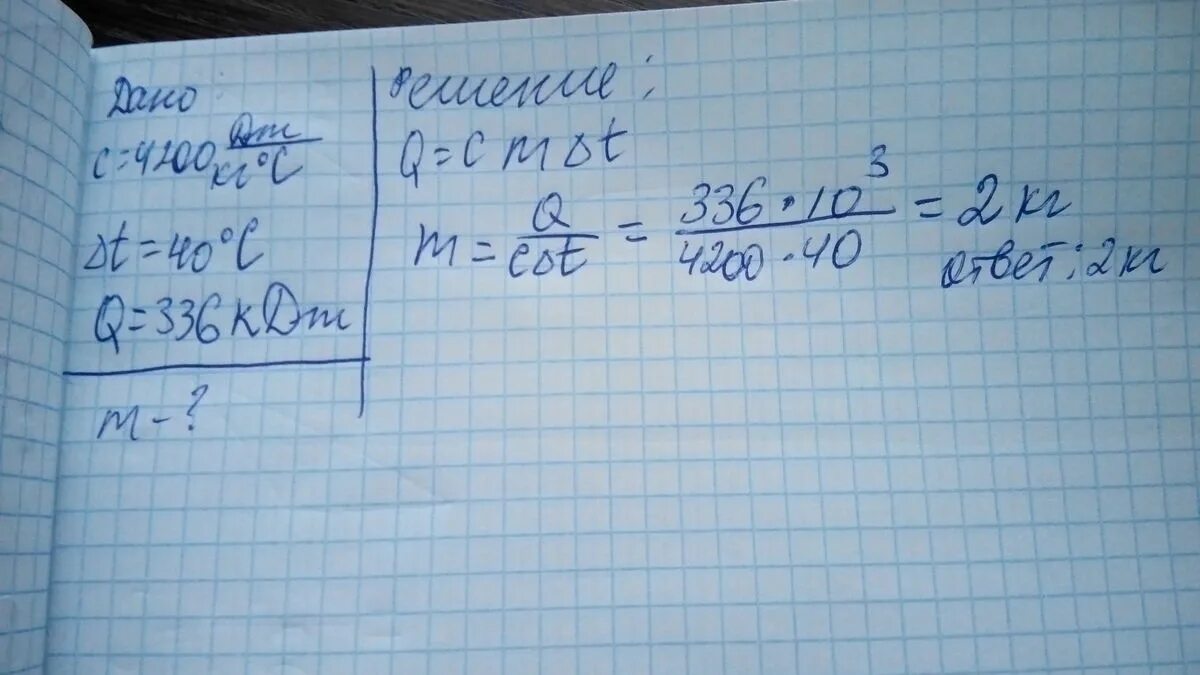 Дано
c=4200 Дж/кг°C
Δt=40°C
Q=336 кДж
m-?
Решение:
Q=cmΔt
m = Q/cΔt = 336·10³/4200·40 = 2 кг
ответ: 2 кг